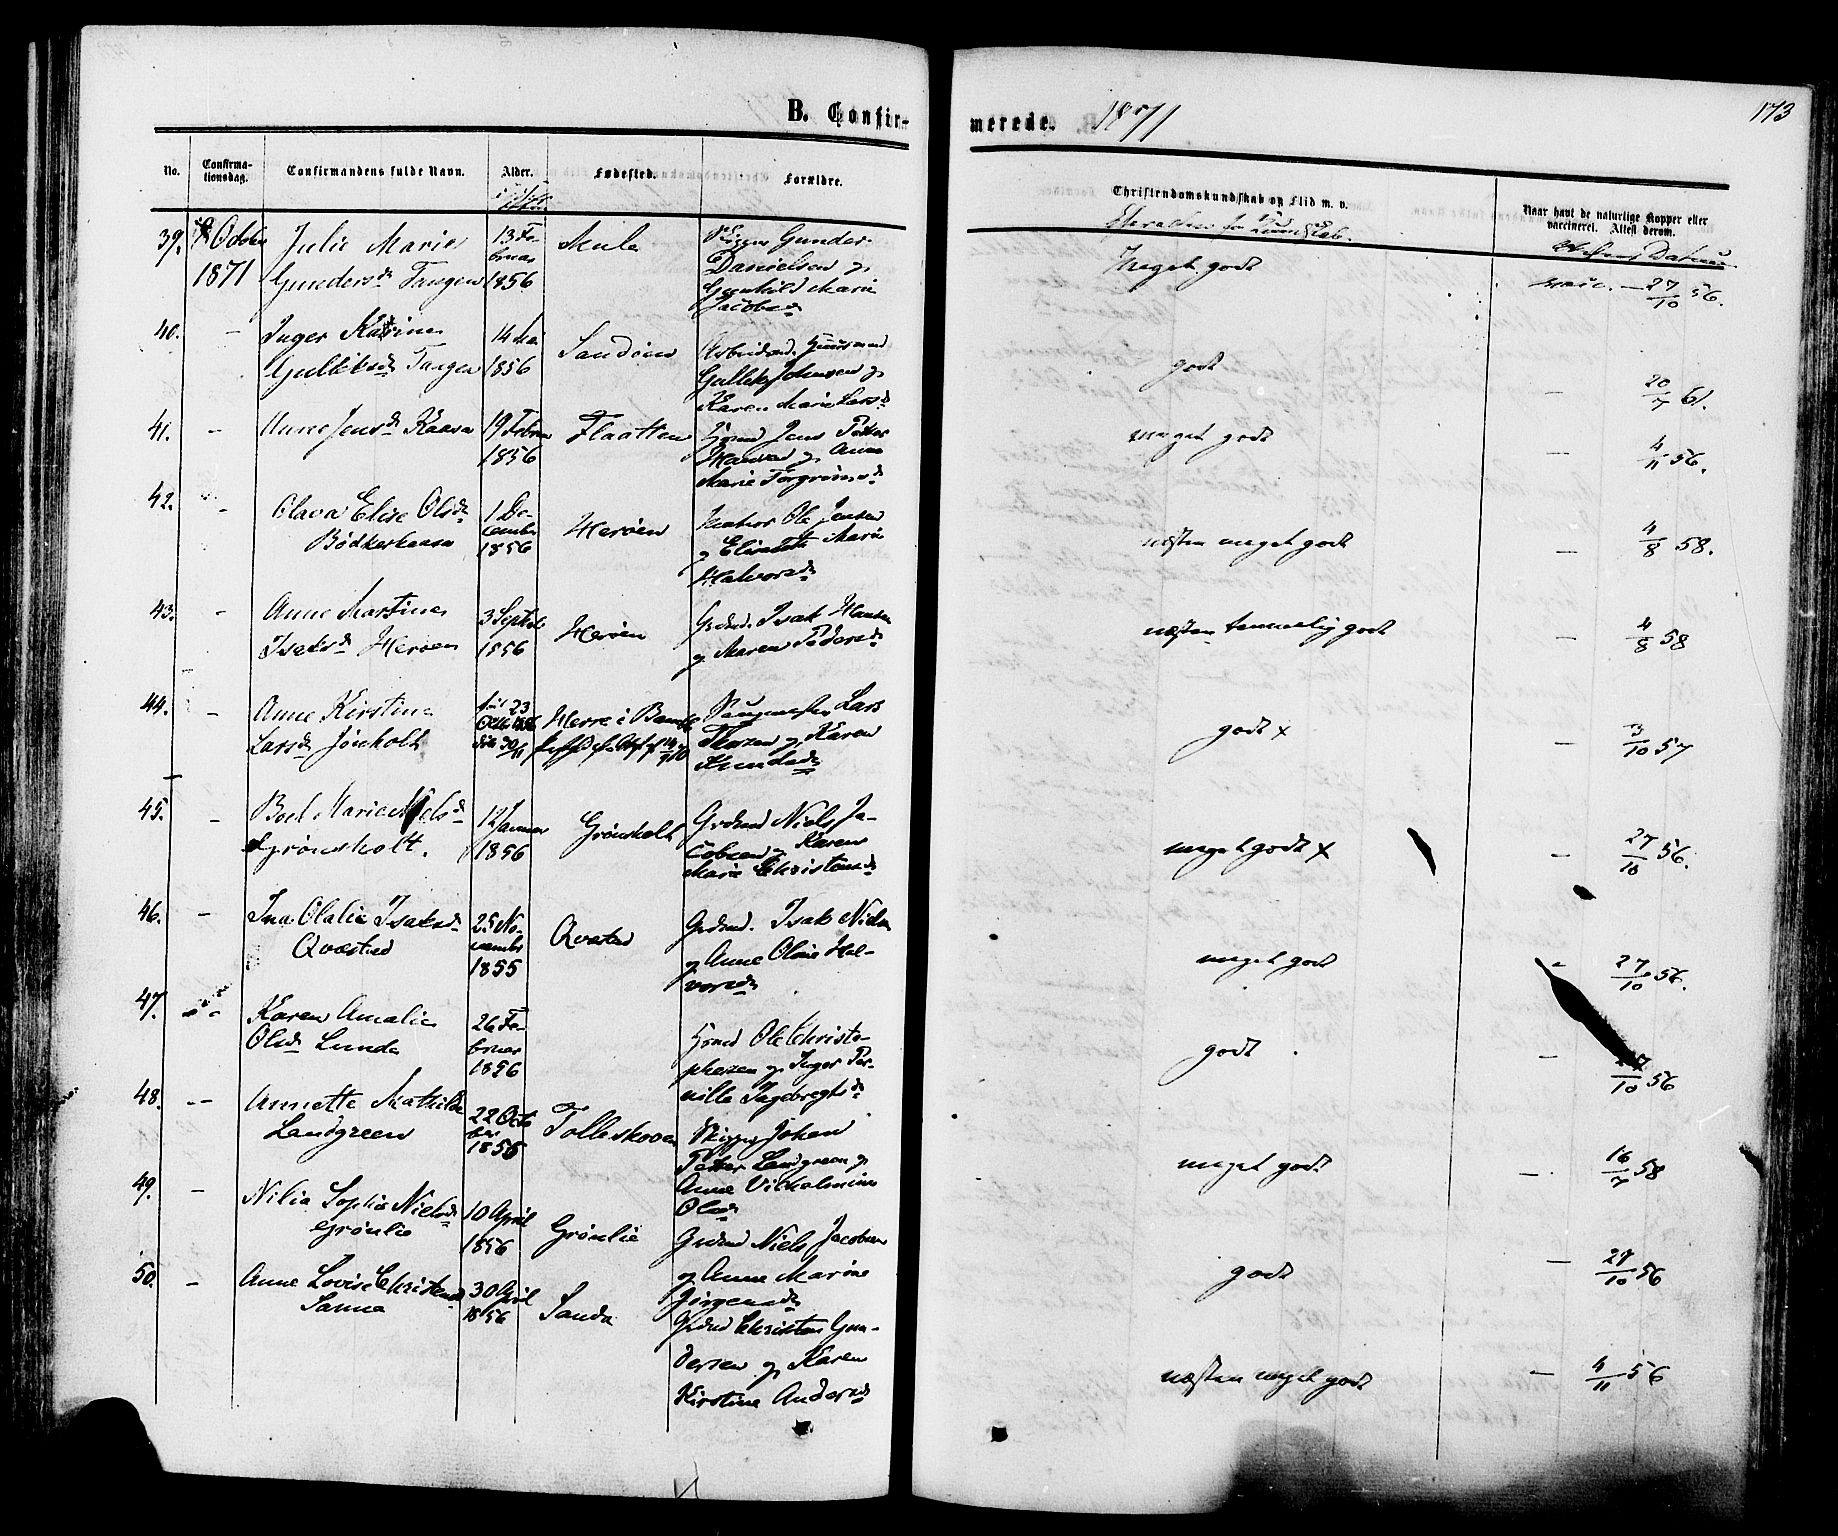 B. Confir-
merede. 1871
173
No.
Confirma-
tionsdag.
Confirmandens fulde Navn.
Alder.
Fødested.
Forældre.
Christendomskundskab og Flid m. v.
Naar havt de naturlige Kopper eller
vaccineret. Attest derom.
39. 8 Octbr 1871
Julie Marie
Gundersd. Tangen
13 Fe-
bruar
1856
Mule
Skipper Gunder
Danielsen og
Gunhild Marie
Jacobsd.
Meget godt
vacc. — 27/10 56.
40. -
Inger Katrine
Gulliksd. Tangen
14 Mai
1856
Sandøen
Arbeidsmd. Huusmand
Gullik Johnsen og
Karen Marie Larsd.
godt
— 20/7 61.
41. -
Anne Jensd. Kaasa
19 Febru
1856
Flaatten
Jens Petter
og Anne
Marie Torgrimsd.
meget godt
— 4/11 56.
42. -
Olava Elise Olsd.
Bödkerkaasa
1 De-
cember
1856
Herøen
Matros Ole Jensen
og Elisabeth Marie
Halvorsd.
næsten meget godt
— 4/8 58.
43. -
Anne Martine
Isaksd. Herøen
3 Septbr
1856
Herøen
Grdmd. Isak Hansen
og Maren Pedersd.
næsten temmelig godt
— 4/8 58
44. -
Anne Kirstine
Larsd. Jønholt
23
1856
Herre i Bamble
Lars
Thorsen og Karen
Knudsd.
godt x
— 3/10 57
45. -
Boel Marie Nielsd.
Grønsholt.
12 Januar
1856
Grønsholt
Grdmd Niels Ja-
cobsen og Karen
Marie Christensd.
meget godt x
— 27/10 56.
46. -
Ina Olalia Isaksd.
Qvæstad
25 No-
vembr
1855
Qvestad
Grdmd. Isak Nielsen
og Anne Oline Hal-
vorsd.
meget godt
- 27/10 56.
47.
Karen Amalie
Olsd. Lunde
26 Fe-
bruar
1856
Ole Christo-
phersen og Inger Per-
nille Ingebregtsd.
godt
— 27/10 56
48. -
Annette Mathilde
Landgreen
22 Octo
ber
1856
Tolleskoven
Skipper Johan
Petter Landgreen og
Anne Vilhelmine
Olsd.
meget godt
— 16/7 58
49. -
Nilia Sophie Nielsd.
Grønlie
10 April
1856
Grønlie
Grdmd Niels Jacobsen
og Anne Marine
Jørgensd.
godt
— 27/10 56
50. -
Anne Lovise Christensd.
Sanna
30 April
1856
Sanda
Grdmd Christen Gun-
dersen og Karen
Kirstine Andersd.
næsten meget godt
— 4/11 56